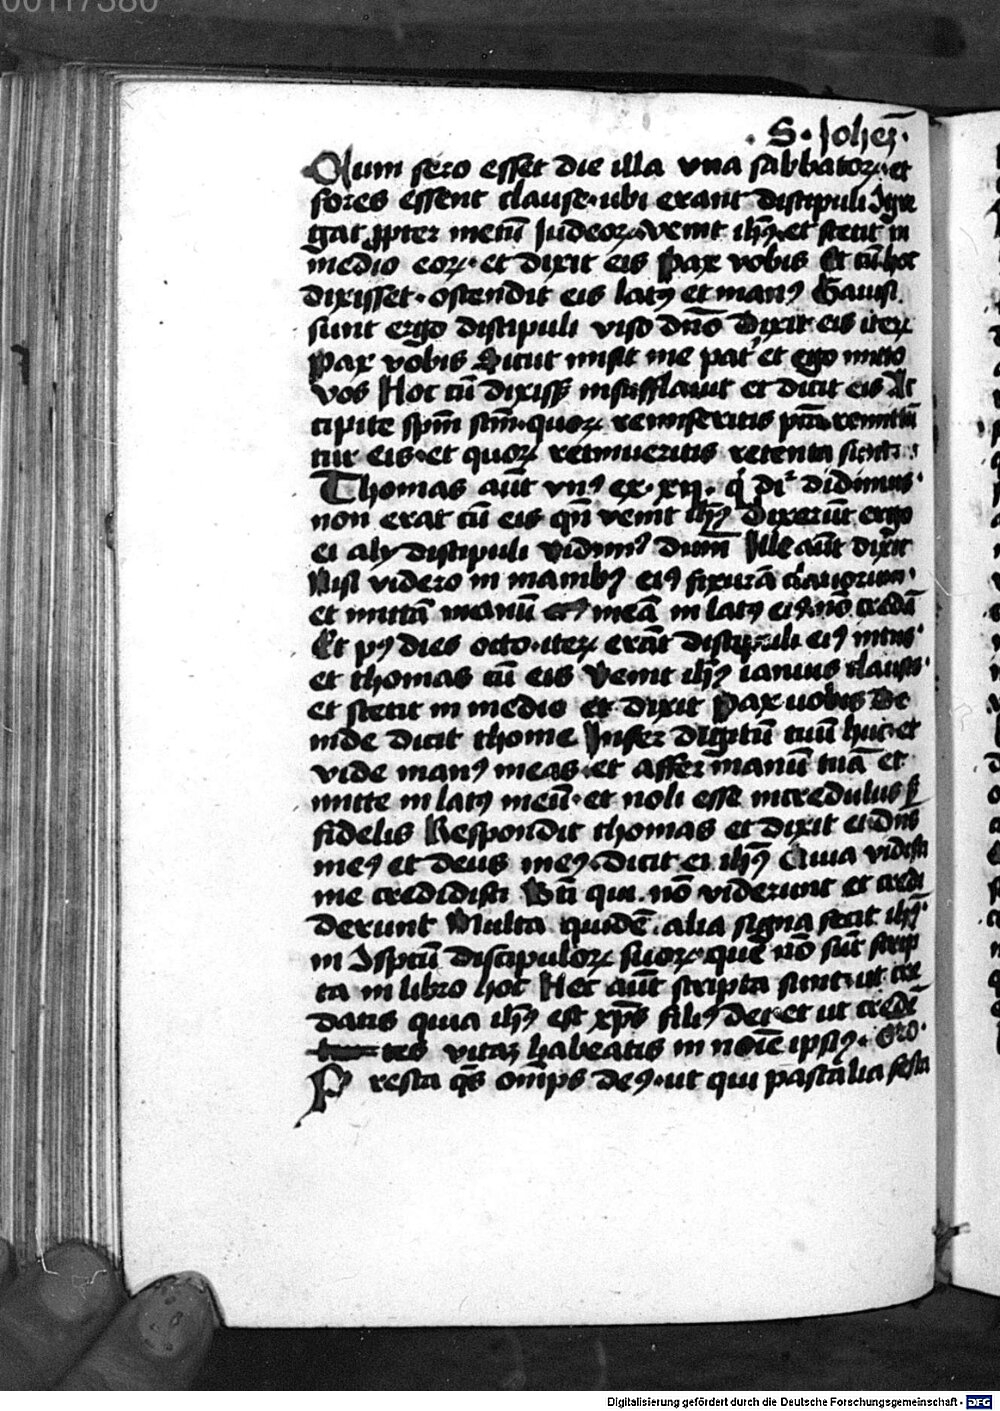 00117380
· S · Johēs ·
Cum sero esset die illa vna sabbatoꝝ · et
fores essent clause · ubi erant discipuli ꝯgre
gati ꝓpter metū Judeoꝝ · venit ihꝰ · et stetit in
medio eoꝝ · et dixit eis Pax vobis Et cū hoc
dixisset · ostendit eis latꝰ et manꝰ Gauisi
sunt ergo discipuli viso dnō Dixit eis iteꝝ
Pax vobis Sicut misit me pat̛ et ego mitto
vos Hoc cū dixiss̄ insufflauit et dicit eis Ac
cipite spm̄ scm̄ · quoꝝ remiseritis pctā remittū
tur eis · et quoꝝ retinueritis retenta sunt ·
Thomas aūt vnꝰ ex · xij · q̇ dr̄ didimus ·
non erat cū eis qn̄ venit ihꝰ Dixerūt ergo
ei alij discipuli Vidimꝰ dnm̄ Ille aūt dixit
Nisi videro in manibꝰ eiꝰ fixurā clauorum ·
et mittā manū meā in latꝰ eiꝰ nō credā
Et pꝰ dies octo · iteꝝ erāt discipuli eiꝰ intus ·
et thomas cū eis Venit ihꝰ ianuis clausis ·
et stetit in medio et dixit Pax uobis De
inde dicit thome Infer digitū tuū huc · et
vide manꝰ meas · et affer manū tuā et
mitte in latꝰ meū · et noli esse incredulus s̄
fidelis Respondit thomas et dixit ei dn̄s
meꝰ et deus meꝰ · dicit ei ihꝰ Quia vidisti
me credidisti Bti̅ qui nō viderunt et credi
derunt Multa quidē alia signa fecit ihꝰ ·
in ꝯspctū discipuloꝝ suoꝝ · que nō sūt scrip
ta in libro hoc Hec aūt scripta sunt · ut cre
datis quia ihꝰ est xp̄s filiꝰ dei · et ut credē
tes vitaꝫ habeatis in noīe ipsiꝰ · Oro ·
Presta qs̄ omp̄s deꝰ · ut qui pascalia festa
Digitalisierung gefördert durch die Deutsche Forschungsgemeinschaft - DFG